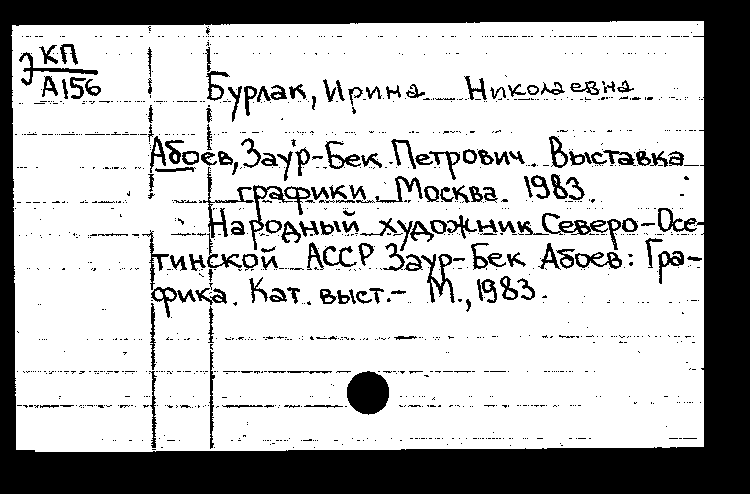 Э КП
А156
Бурлак, Ирина Николаевна
Абоев, Заур-Бек Петрович. Выставка
графики. Москва. 1983.
Народный художник Северо-Осе-
тинской АССР Заур-Бек Абоев: Гра-
фика. Кат. выст.- М., 1983.